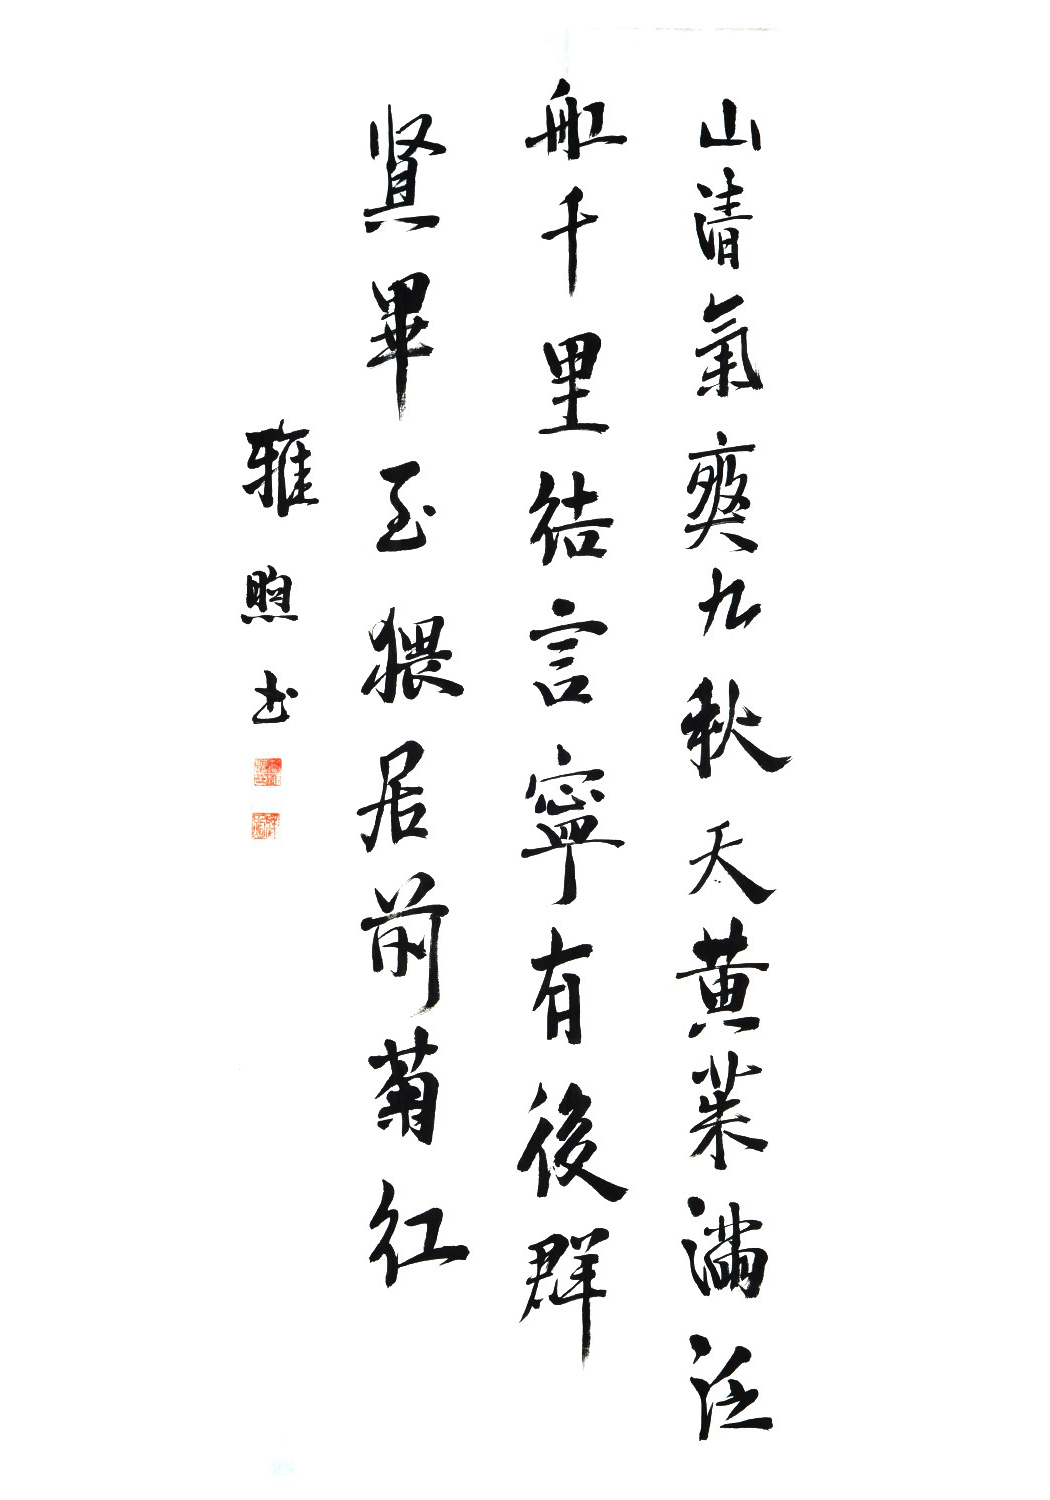 山清氣爽九秋天黄茱滿泛
舡千里結言寧有後群
賢畢至猥居前菊紅
雅煦书